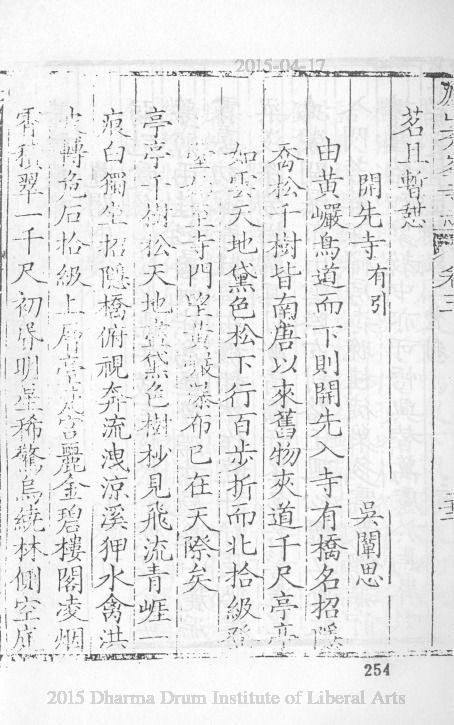 2015-04-17
卷三
茗且暫憇
開先寺有引
吳闡思
由黃巖鳥道而下則開先入寺有橋名招隱
喬松千樹皆南唐以來舊物夾道千尺亭亭
如雲天地黛色松下行百步折而北拾級登
至寺門望黃巖瀑布已在天際矣
亭亭千樹松天地盡黛色樹杪見飛流青崕一
痕白獨坐招隱橋俯視奔流洩涼溪狎水禽洪
轉危石拾級上層亭 麗金碧樓閣凌烟
霄積翠一千尺初昏明星稀驚烏繞林側空庭
254
2015 Dharma Drum Institute of Liberal Arts